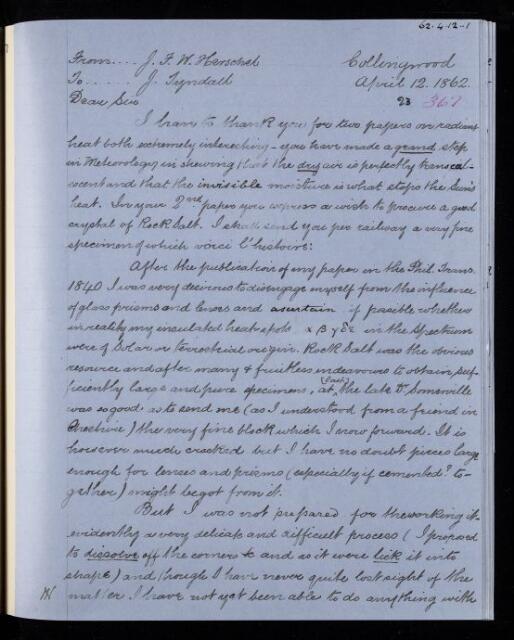 62.4.12-1
From.... J. F. W. Herschel
Collingwood
To...... J. Tyndall
April 12. 1862.
Dear Sir
23 367
I have to thank you for two papers on radiant
heat both extremely interesting - you have made a grand step
in Meteorology in shewing that the dry air is perfectly transcal-
escent and that the invisible moisture is what stops the Sun's
heat. In your 2nd paper you express a wish to procure a good
crystal of Rock Salt. I shall send you per railway a very fine
specimen of which voici l'histoire:
After the publication of my paper in the Phil. Trans.
1840 I was very desirous to disengage myself from the influence
of glass prisms and lenses and ascertain if possible whether
in reality my insulated heat spots α β γ δ ε in the Spectrum
were of Solar or terrestrial origin. Rock Salt was the obvious
resource and after many & fruitless endeavours to obtain suf-
ficiently large and pure specimens, at (last) the late Dr Somerville
was so good as to send me (as I understood from a friend in
Cheshire) the very fine block which I now forward. It is
however much cracked but I have no doubt pieces large
enough for lenses and prisms (especially if cemented? to-
gether) might be got from it.
But I was not prepared for the working it-
evidently a very delicate and difficult process (I proposed
to dissolve off the corners & and as it were lick it into
shape) and though I have never quite lost sight of the
matter I have not yet been able to do anything with